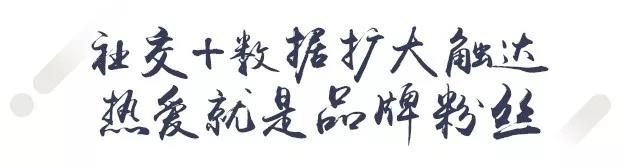 社交+数据扩大触达
热爱就是品牌粉丝